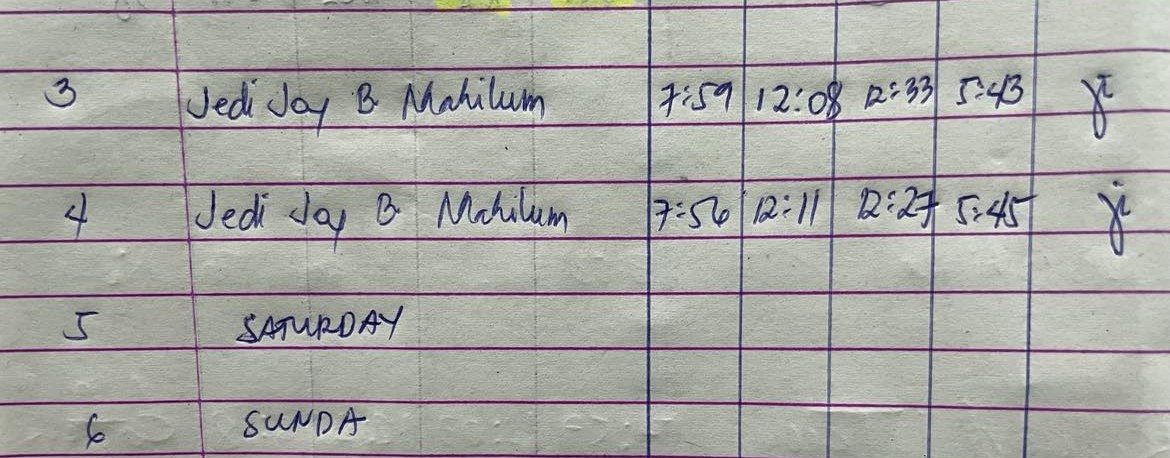 3 Jedi Jay B Mahilum 7:59 12:08 12:33 5:43
4 Jedi Jay B Mahilum 7:56 12:11 12:27 5:45
5 SATURDAY
6 SUNDA